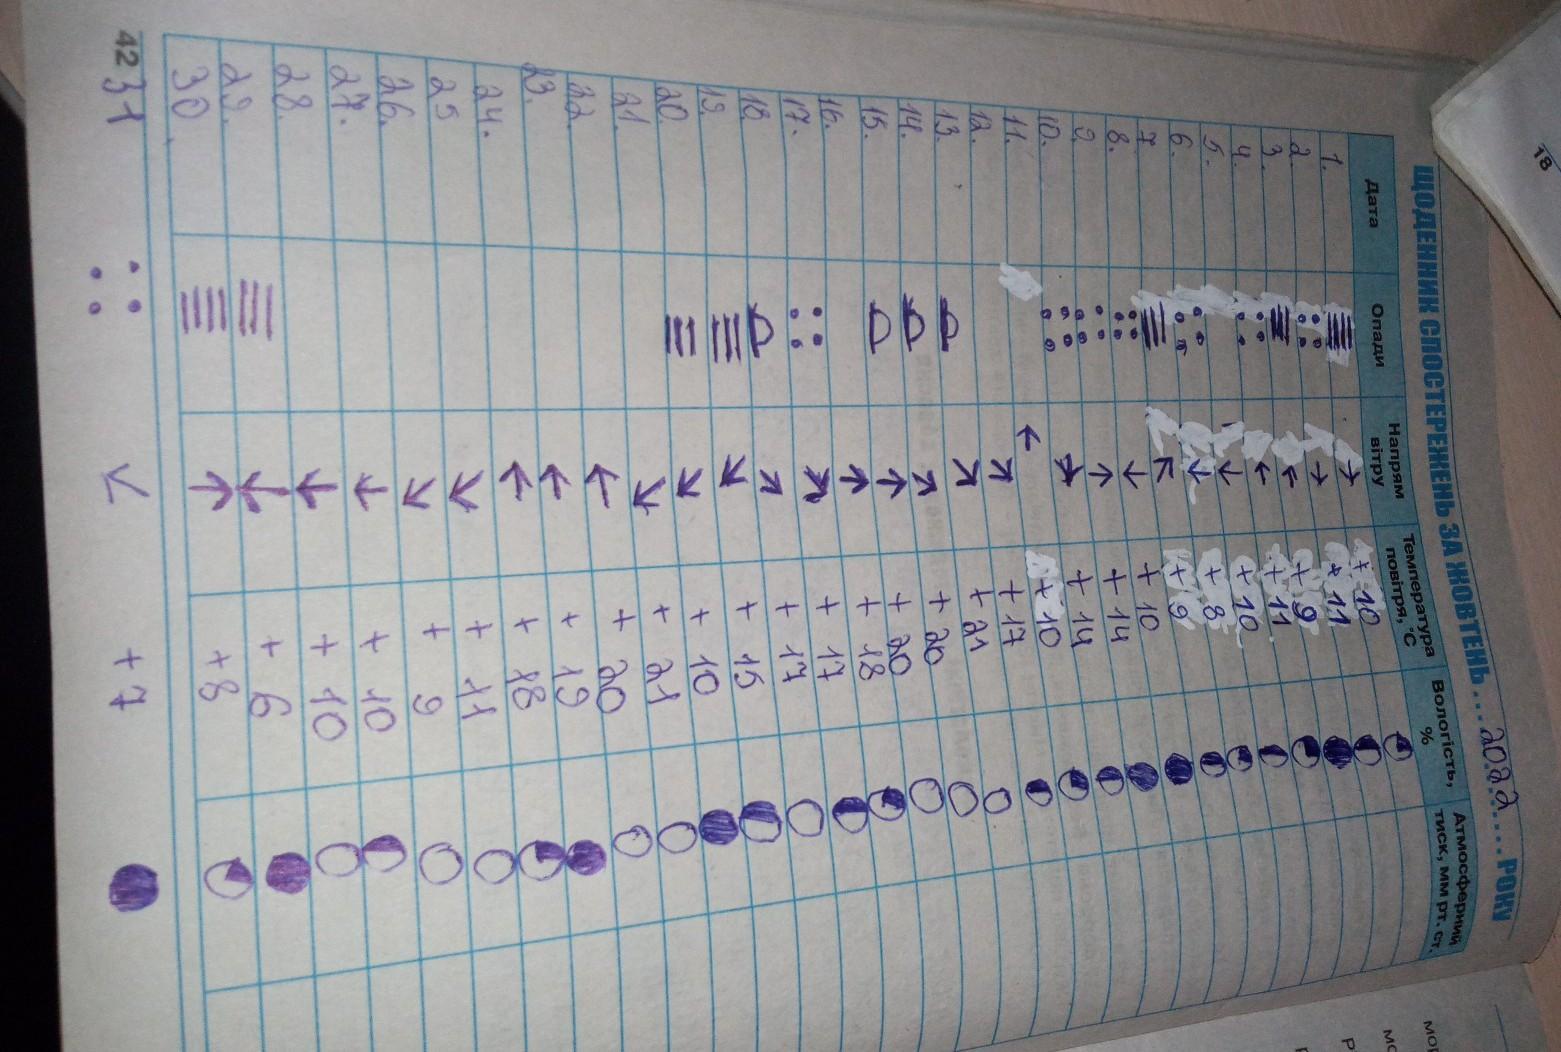 ЩОДЕННИК СПОСТЕРЕЖЕНЬ ЗА ЖОВТЕНЬ....2022....РОКУ
Дата Опади Напрям вітру Температура повітря, °С Вологість, % Атмосферний тиск, мм рт. ст.
1. +10
2. +11
3. +9
4. +11
5. +10
6. +8
7 +9
8. +10
9. +14
10. +14
11. +10
12. +17
13. +21
14. +20
15. +20
16. +18
17. +17
18 +17
19. +15
20 +10
21. +21
22. +20
23. +19
24. +18
25 +11
26. +9
27. +10
28. +10
29. +6
30. +8
31 +7
42
18